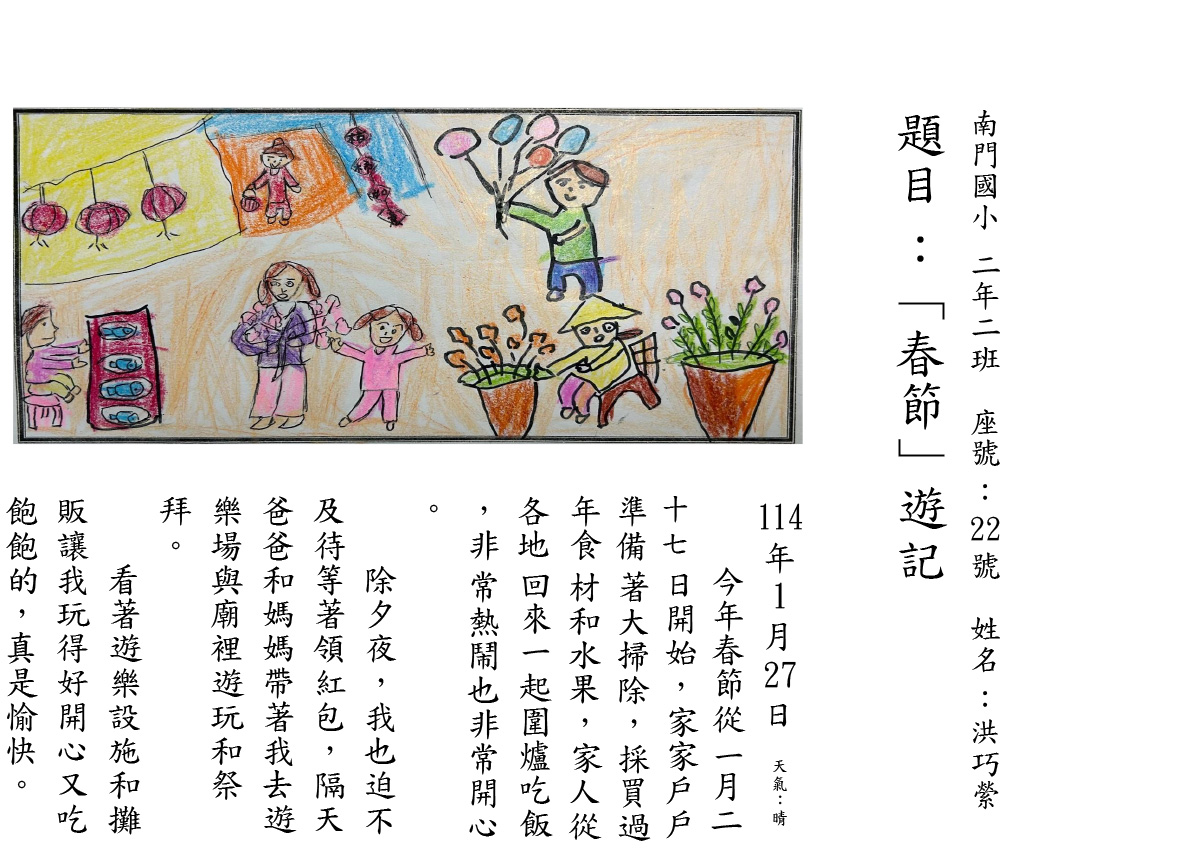 南門國小 二年二班 座號：22號 姓名：洪巧縈
題目：「春節」遊記
114年1月27日 天氣：晴
今年春節從一月二
十七日開始，家家戶戶
準備著大掃除，採買過
年食材和水果，家人從
各地回來一起圍爐吃飯
，非常熱鬧也非常開心
。
除夕夜，我也迫不
及待等著領紅包，隔天
爸爸和媽媽帶著我去遊
樂場與廟裡遊玩和祭
拜。
看著遊樂設施和攤
販讓我玩得好開心又吃
飽飽的，真是愉快。